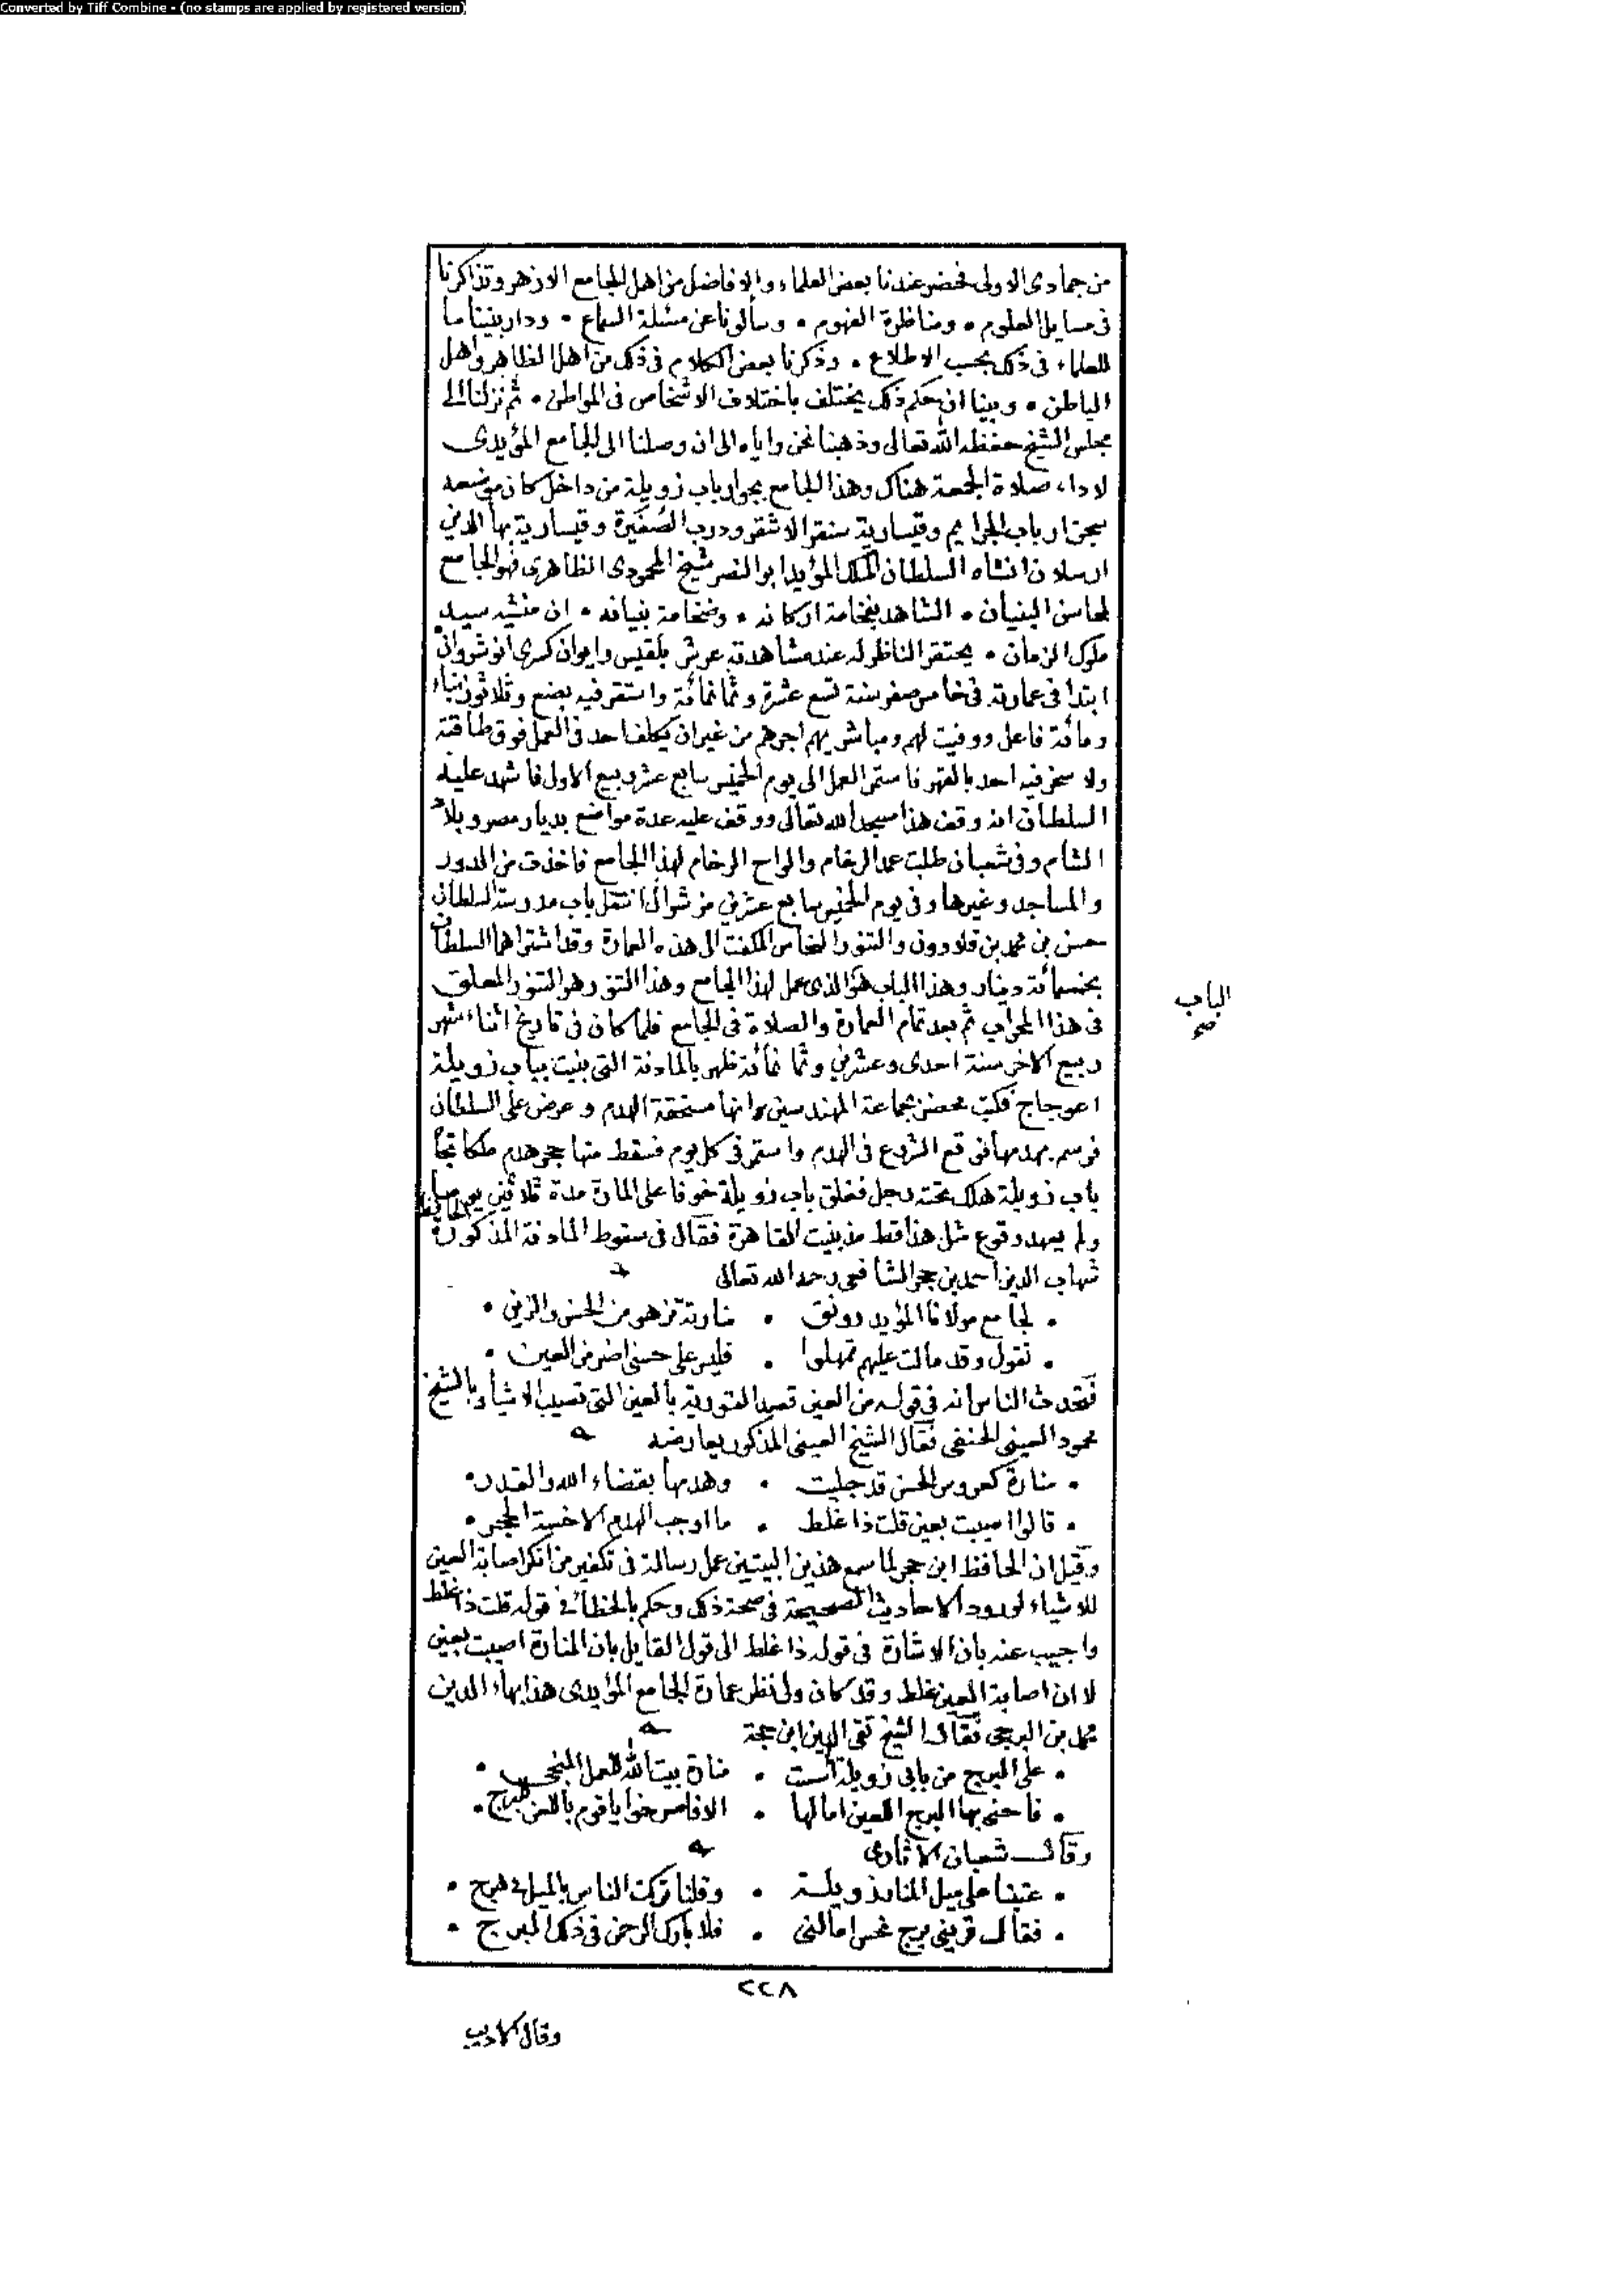 Converted by Tiff Combine - (no stamps are applied by registered version)
من جمادى الاولى فحضر عندنا بعض العلماء والافاضل من اهل الجامع الازهر وتذاكرنا
فى مسايل العلوم • ومناظرة الفهوم • وسألونا عن مسئلة السماع • ودار بيننا ما
للعلماء فى ذلك بحسب الاطلاع • وذكرنا بعض الكلام فى ذلك من اهل الظاهر واهل
الباطن • وبينا ان حكم ذلك يختلف باختلاف الاشخاص فى المواطن • ثم نزلنا الى
مجلس الشيخ حفظه الله تعالى وذهبنا نحن واياه الى ان وصلنا الى الجامع المؤيدى
لاداء صلاة الجمعة هناك وهذا الجامع بجوار باب زويلة من داخل كان موضعه
سجن ارباب الجرايم وقيسارية سنقر الاشقر ودرب الصغيرة وقيسارية بها الدين
ارسلان انشاه السلطان الملك المؤيد ابو النصر شيخ المحمودى الظاهرى فهو الجامع
لمحاسن البنيان • الشاهد بفخامة اركانه • وضخامة بنيانه • ان منشيه سيد
ملوك الزمان • يحتقر الناظر له عند مشاهدته عرش بلقيس وايوان كسرى انوشروان
ابتدا فى عمارته فى خامس صفر سنة تسع عشرة وثمانمائة واستقر فيه بضع وثلاثون بناء
ومائة فاعل ووفيت لهم ولمباشريهم اجرهم من غير ان يكلف احد فى العمل فوق طاقته
ولا سخر فيه احد بالقهر فاستمر العمل الى يوم الخميس سابع عشر ربيع الاول فاشهد عليه
السلطان انه وقف هذا مسجدا لله تعالى ووقف عليه عدة مواضع بديار مصر وبلاد
الشام وفى شعبان طلبت عمد الرخام والواح الرخام لهذا الجامع فاخذت من الدور
والمساجد وغيرها وفى يوم الخميس سابع عشرين من شوال انتقل باب مدرسة السلطان
حسن بن محمد بن قلاوون والتنور النحاس المكفت الى هذه العمارة وقد اشتراهما السلطان
بخمسمائة دينار وهذا الباب هو الذى عمل لهذا الجامع وهذا التنور هو التنور المعلق
الباب
صح
فى هذا المحراب ثم بعد تمام العمارة والصلاة فى الجامع فلما كان فى تاريخ اثناء شهر
ربيع الاخر سنة احدى وعشرين وثمانمائة ظهر بالمادنة التى بنيت بباب زويلة
اعوجاج فكتب محضر بجماعة المهندسين وانها مستحقة الهدم وعرض على السلطان
فرسم بهدمها فوقع الشروع فى الهدم واستمر فى كل يوم فسقط منها حجر هدم ملكا تجاه
باب زويلة هلك تحته رجل فغلق باب زويلة خوفا على المارة مدة ثلاثين يوما
ولم يعهد وقوع مثل هذا قط مذ بنيت القاهرة فقال فى سقوط المادنة المذكورة الحافظ
شهاب الدين احمد بن حجر الشافعى رحمه الله تعالى
• لجامع مولانا المؤيد رونق • منارته تزهو من الحسن والزين •
• تقول وقد مالت عليهم تمهلوا • فليس على حسنى اضر من العين •
فتحدث الناس انه فى قوله من العين قصد التورية بالعين التى تصيب الاشياء وبالشيخ
محمود العينى الحنفى فقال الشيخ العينى المذكور يعارضه
• منارة كعروس الحسن قد جليت • وهدمها بقضاء الله والقدر •
• قالوا اصيبت بعين قلت ذا غلط • ما اوجب الهدم الا خسة الحجر •
وقيل ان الحافظ ابن حجر لما سمع هذين البيتين عمل رسالة فى تكفير من انكر اصابة العين
للاشياء لورود الاحاديث الصحيحة فى صحة ذلك وحكم بالخطأ فى قوله قلت ذا غلط
واجيب عنه بان الاشارة فى قوله ذا غلط الى قول القايل بان المنارة اصيبت بعين
لا ان اصابة العين غلط وقد كان ولى نظر عمارة الجامع المؤيدى هذا بهاء الدين
محمد بن البرجى فقال الشيخ تقى الدين ابن حجة
• على البرج من بابى زويلة انشئت • منارة بيت الله للعمل المنجى •
• فاحنى بها البرج اللعين امالها • الا فاصرخوا يا قوم باللعن للبرج •
وقال شعبان الاثارى
• عتبنا على ميل المنار زويلة • وقلنا تركت الناس بالميل فى هرج •
• فقالت قرينى برج نحس امالنى • فلا بارك الرحمن فى ذلك البرج •
٢٢٨
وقال الاديب